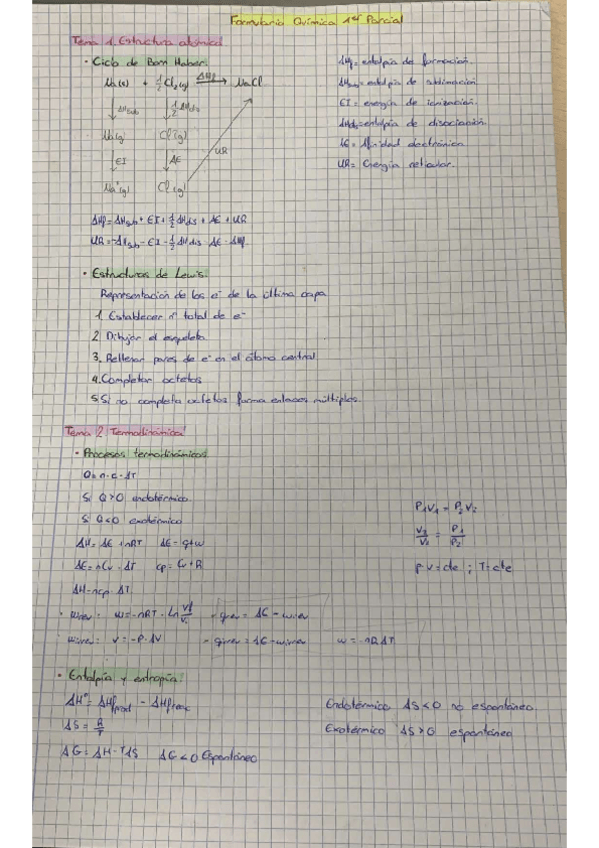 Formulario Química 1er Parcial
Tema 1. Estructura atómica
· Ciclo de Born Haber:
Na(s) + 1/2 Cl2(g) ΔHf → NaCl
↓ΔHsub ↓1/2 ΔHdis
Na(g) Cl(g) UR
↓EI ↓AE
Na+(g) Cl-(g)
ΔHf = entalpía de formación.
ΔHsub = entalpía de sublimación.
EI = energía de ionización.
ΔHdis = entalpía de disociación.
AE = Afinidad electrónica
UR = Energía reticular.
ΔHf = ΔHsub + EI + 1/2 ΔHdis + AE + UR
UR = -ΔHsub - EI - 1/2 ΔHdis - AE - ΔHf.
· Estructuras de Lewis:
Representación de los e- de la última capa
1. Establecer nº total de e-
2. Dibujar el esqueleto
3. Rellenar pares de e- en el átomo central
4. Completar octetos
5. Si no completa octetos forma enlaces múltiples.
Tema 2 Termodinámica
· Procesos termodinámicos
Q = n·c·ΔT
Si Q>0 endotérmico
Si Q<0 exotérmico
ΔH = ΔE + nRT ΔE = q+w
ΔE = nCv·ΔT cp = Cv+R
ΔH = ncp·ΔT
P1V1 = P2V2
V2/V1 = P1/P2
P·V = cte ; T = cte
w = -nRT · Ln
= -P·ΔV w = -nRΔT
· Entalpía y entropía:
ΔHº = ΔHf prod - ΔHf reac
ΔS = /T
ΔG = ΔH - TΔS ΔG<0 Espontáneo
Endotérmico ΔS<0 no espontáneo
Exotérmico ΔS>0 espontáneo